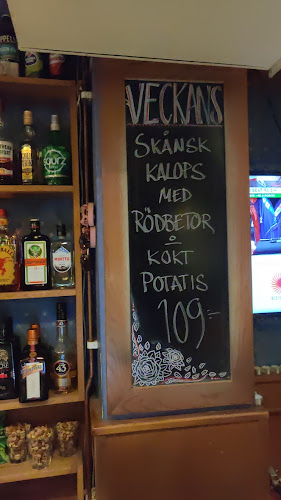 VECKANS
SKÅNSK
KALOPS
MED
RÖDBETOR
&
KOKT
POTATIS
109:-
43